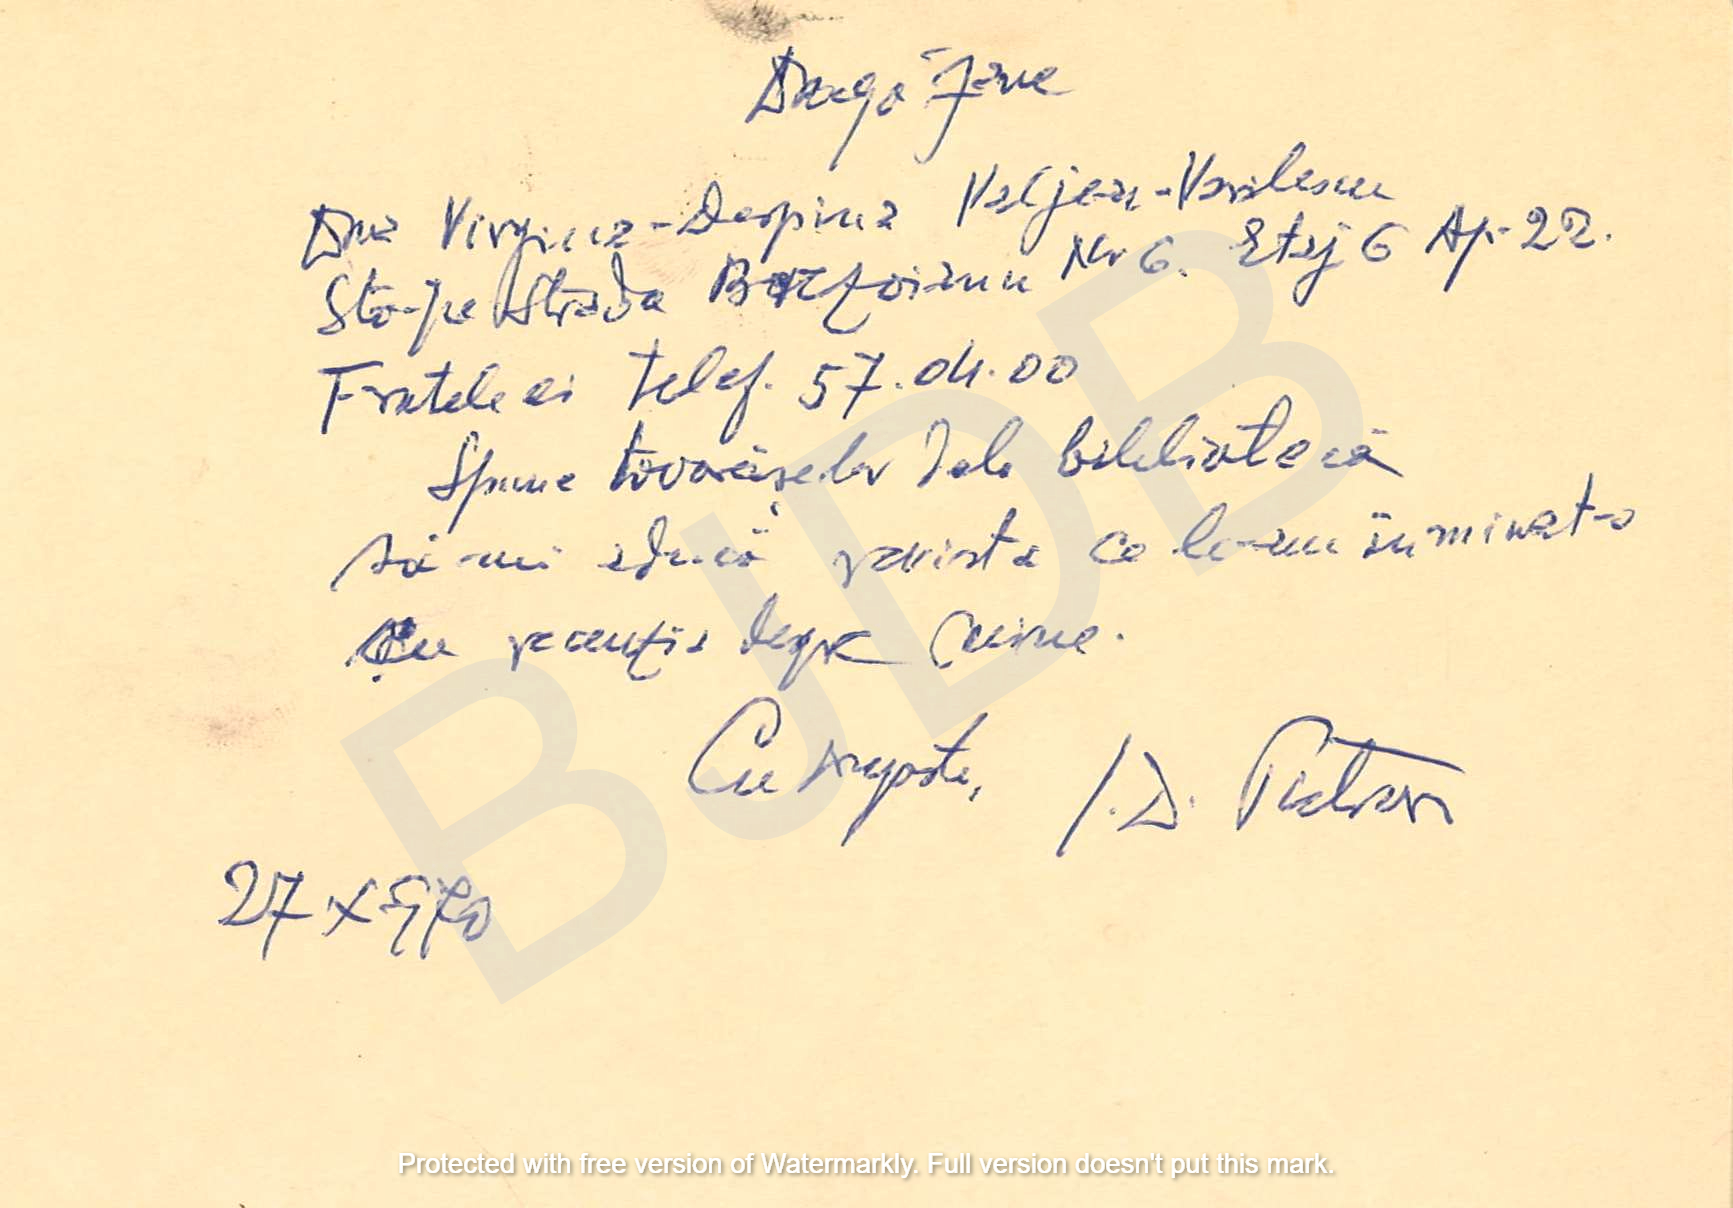 Dragă Jane
Dna Virginia-Despina Valjean-Vasilescu
Sta-pe Strada Nr 6. Etaj 6 Ap. 22.
Fratele ei telef. 57.04.00
Spune tovarășelor dela bibliotecă
să-mi aducă revista ce le-am înminat-o
cu recenzia despre mine.
Cu dragoste, I. D. Pietrari
27 X 970
BJDB
Protected with free version of Watermarkly. Full version doesn't put this mark.